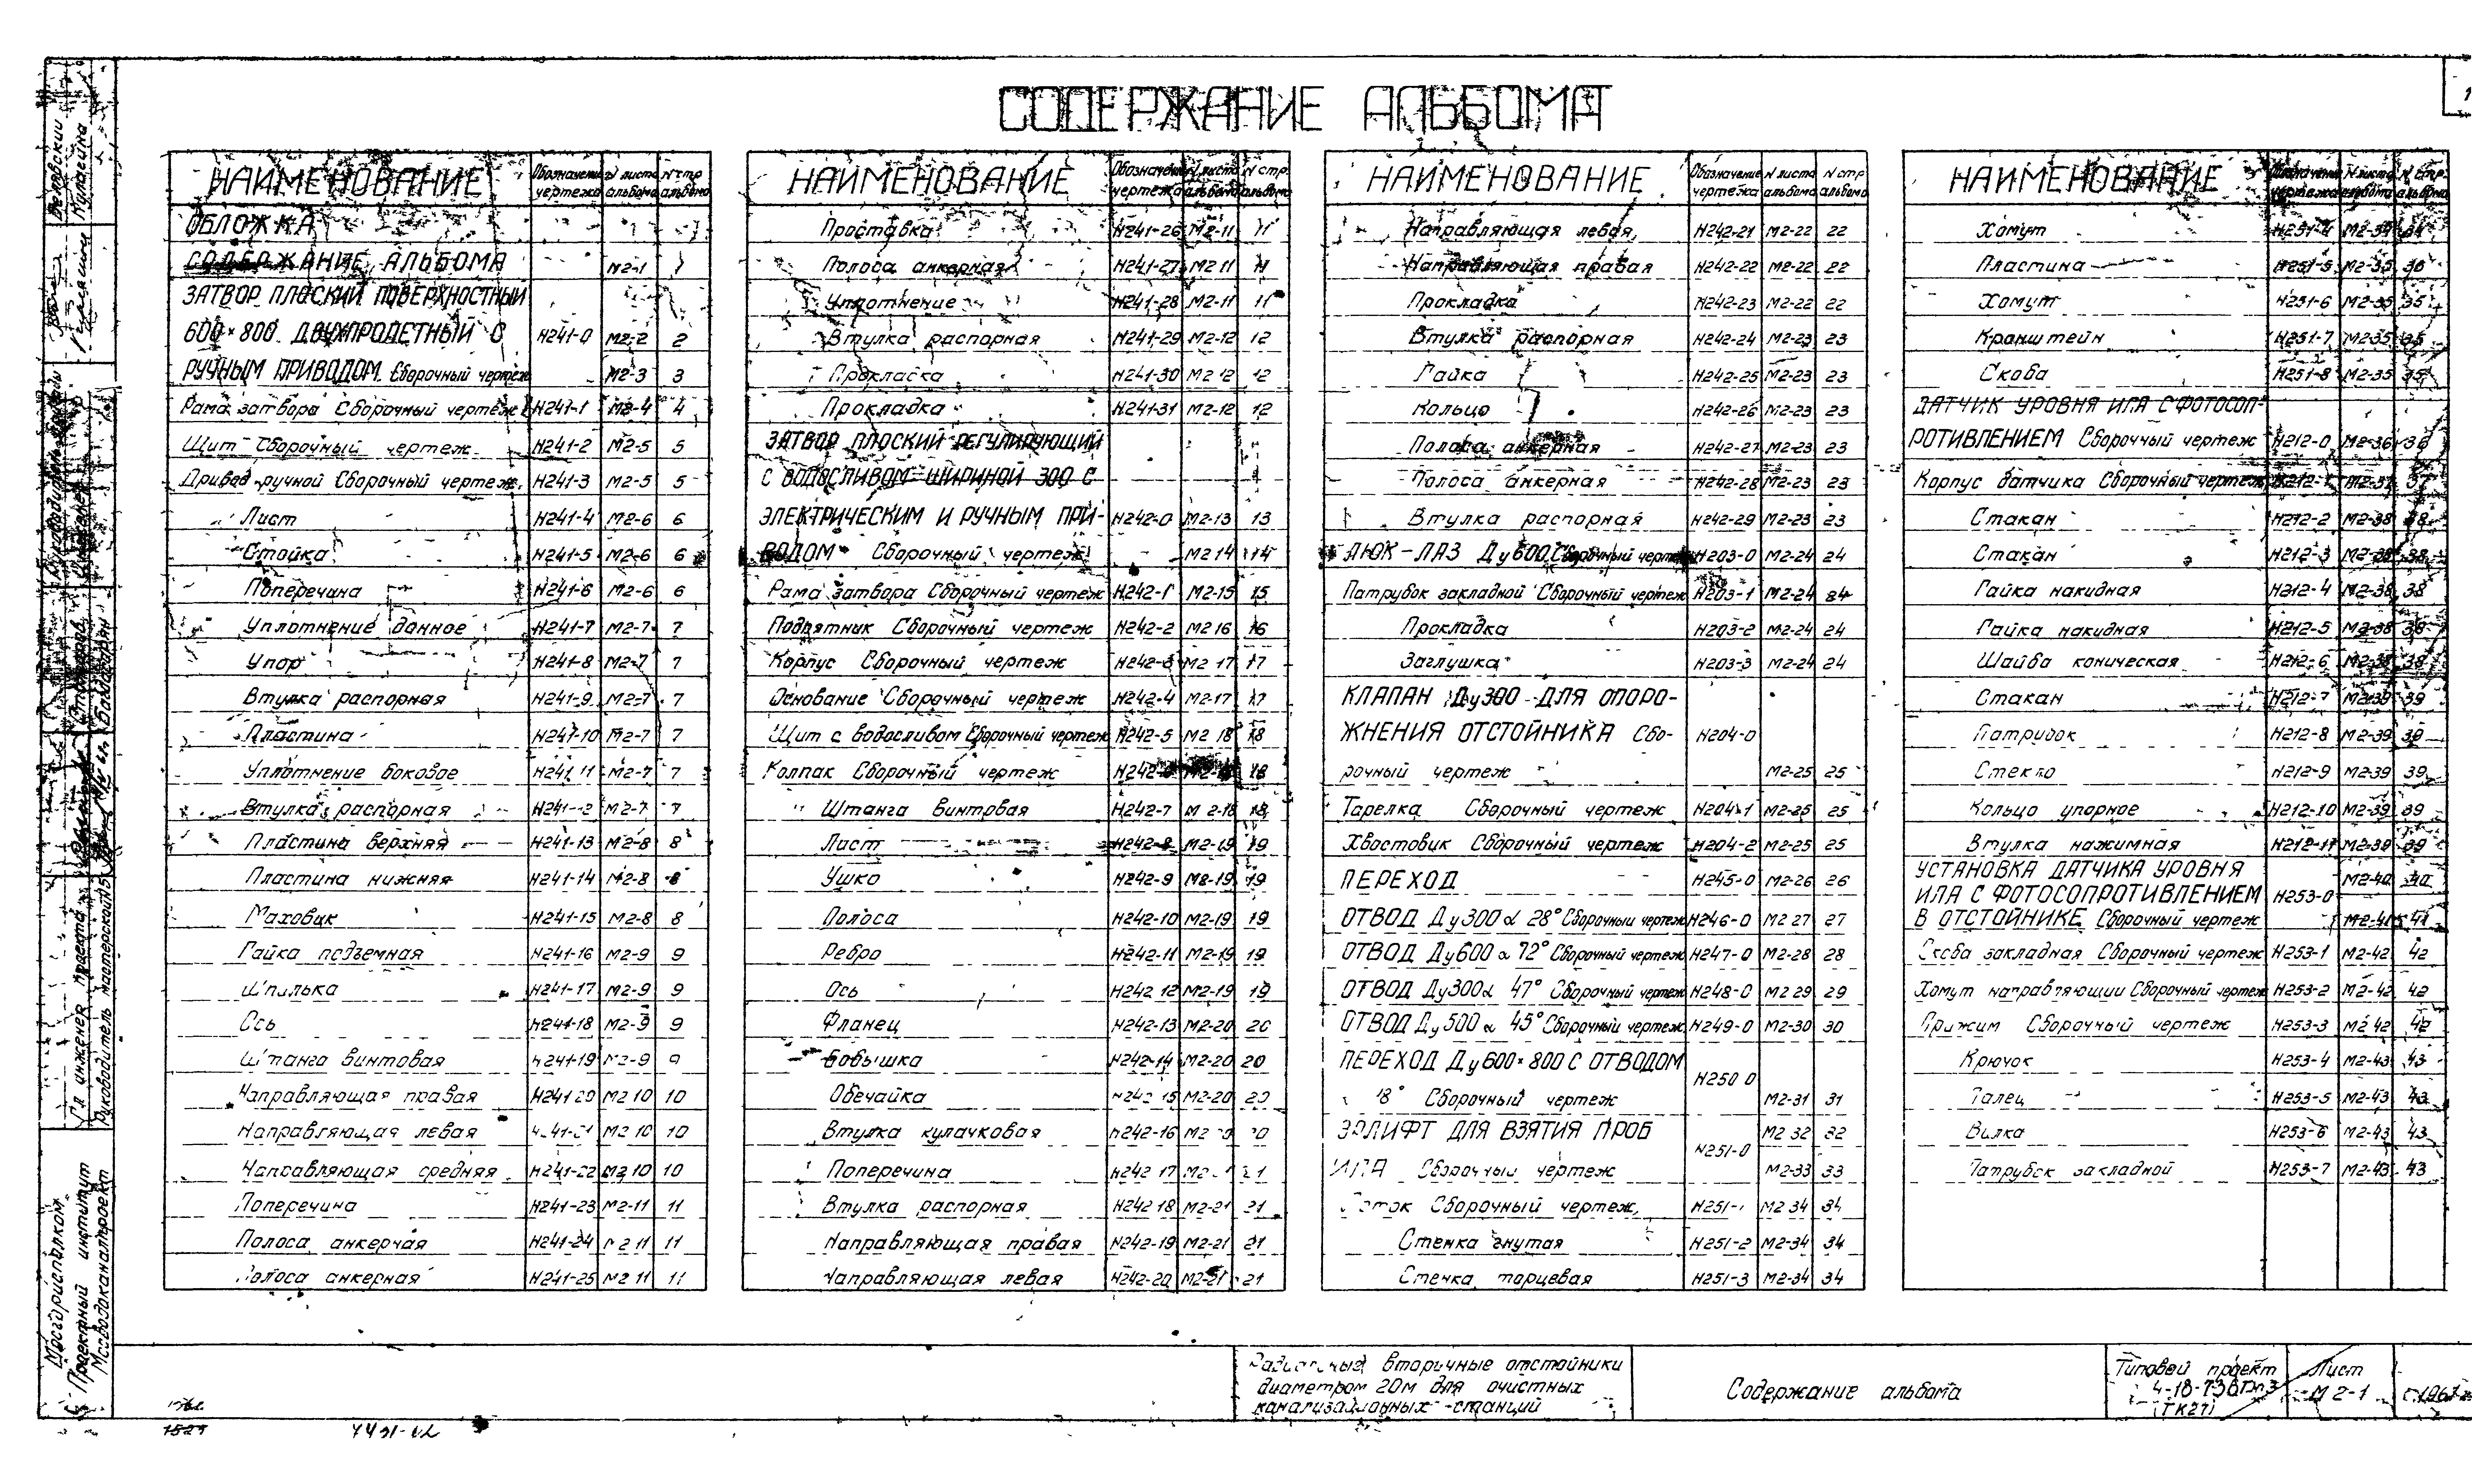 СОДЕРЖАНИЕ АЛЬБОМА
НАИМЕНОВАНИЕ Обозначение чертежа N листа альбома N стр альбома
ОБЛОЖКА
СОДЕРЖАНИЕ АЛЬБОМА М2-1 1
ЗАТВОР ПЛОСКИЙ ПОВЕРХНОСТНЫЙ
600×800 ДВУХПРОЛЕТНЫЙ С Н241-0 М2-2 2
РУЧНЫМ ПРИВОДОМ. Сборочный чертеж М2-3 3
Рама затвора Сборочный чертеж Н241-1 М2-4 4
Щит Сборочный чертеж Н241-2 М2-5 5
Привод ручной Сборочный чертеж. Н241-3 М2-5 5
Лист Н241-4 М2-6 6
Стойка Н241-5 М2-6 6
Поперечина Н241-6 М2-6 6
Уплотнение донное Н241-7 М2-7 7
Упор Н241-8 М2-7 7
Втулка распорная Н241-9 М2-7 7
Пластина Н241-10 М2-7 7
Уплотнение боковое Н241 11 М2-7 7
Втулка распорная М2-7 7
Пластина верхняя Н241-13 М2-8 8
Пластина нижняя Н241-14 М2-8 8
Маховик Н241-15 М2-8 8
Гайка подъемная Н241-16 М2-9 9
Шпилька Н241-17 М2-9 9
Ось Н241-18 М2-9 9
Штанга винтовая Н241-19 М2-9 9
Направляющая правая Н241 20 М2 10 10
Направляющая левая М2 10 10
Направляющая средняя Н241-22 М2 10 10
Поперечина Н241-23 М2-11 11
Полоса анкерная Н241-24 М2 11 11
Полоса анкерная Н241-25 М2 11 11
НАИМЕНОВАНИЕ Обозначение чертежа N листа альбома N стр. альбома
Проставка Н241-26 М2-11 11
Полоса анкерная Н241-27 М2 11 11
Уплотнение Н241-28 М2-11 11
Втулка распорная Н241-29 М2-12 12
Прокладка Н241-30 М2 12 12
Прокладка Н241-31 М2-12 12
ЗАТВОР ПЛОСКИЙ РЕГУЛИРУЮЩИЙ
С ВОДОСЛИВОМ ШИРИНОЙ 300 С
ЭЛЕКТРИЧЕСКИМ И РУЧНЫМ ПРИ- Н242-0 М2-13 13
ВОДОМ Сборочный чертеж М2 14 14
Рама затвора Сборочный чертеж Н242-1 М2-15 15
Подпятник Сборочный чертеж Н242-2 М2 16 16
Корпус Сборочный чертеж Н242-3 М2 17 17
Основание Сборочный чертеж Н242-4 М2-17 17
Щит с водосливом Сборочный чертеж Н242-5 М2 18 18
Колпак Сборочный чертеж 18
Штанга винтовая Н242-7 М 2-18 18
Лист Н242-8 М2-19 19
Ушко Н242-9 М2-19 19
Полоса Н242-10 М2-19 19
Ребро Н242-11 М2-19 19
Ось Н242 12 М2-19 19
Фланец Н242-13 М2-20 20
Бобышка Н242-14 М2-20 20
Обечайка М2-20 20
Втулка кулачковая Н242-16
Поперечина Н242 17
Втулка распорная Н242 18 М2-21 21
Направляющая правая Н242-19 М2-21 21
Направляющая левая Н242-20 М2-21 21
НАИМЕНОВАНИЕ Обозначение чертежа N листа альбома N стр альбома
Направляющая левая Н242-21 М2-22 22
Направляющая правая Н242-22 М2-22 22
Прокладка Н242-23 М2-22 22
Втулка распорная Н242-24 М2-23 23
Гайка Н242-25 М2-23 23
Кольцо Н242-26 М2-23 23
Полоса анкерная Н242-27 М2-23 23
Полоса анкерная Н242-28 М2-23 23
Втулка распорная Н242-29 М2-23 23
ЛЮК-ЛАЗ Ду600 Сборочный чертеж Н203-0 М2-24 24
Патрубок закладной Сборочный чертеж Н203-1 М2-24 24
Прокладка Н203-2 М2-24 24
Заглушка Н203-3 М2-24 24
КЛАПАН Ду300 ДЛЯ ОПОРО-
ЖНЕНИЯ ОТСТОЙНИКА Сбо- Н204-0
рочный чертеж М2-25 25
Тарелка Сборочный чертеж Н204-1 М2-25 25
Хвостовик Сборочный чертеж Н204-2 М2-25 25
ПЕРЕХОД Н245-0 М2-26 26
ОТВОД Ду300 α 28° Сборочный чертеж Н246-0 М2 27 27
ОТВОД Ду600 α 72° Сборочный чертеж Н247-0 М2-28 28
ОТВОД Ду300 α 47° Сборочный чертеж Н248-0 М2 29 29
ОТВОД Ду 500 α 45° Сборочный чертеж Н249-0 М2-30 30
ПЕРЕХОД Ду600×800 С ОТВОДОМ
18° Сборочный чертеж Н250 0 М2-31 31
ЭРЛИФТ ДЛЯ ВЗЯТИЯ ПРОБ Н251-0 М2 32 32
ИЛА Сборочный чертеж М2-33 33
Сборочный чертеж М2 34 34
Стенка гнутая Н251-2 М2-34 34
Стенка торцевая Н251-3 М2-34 34
НАИМЕНОВАНИЕ Обозначение чертежа N листа альбома N стр. альбома
Хомут Н251-4 М2-34 34
Пластина Н251-5 М2-35 35
Хомут Н251-6 М2-35 35
Кронштейн Н251-7 М2-35 35
Скоба Н251-8 М2-35 35
ДАТЧИК УРОВНЯ ИЛА С ФОТОСОП-
РОТИВЛЕНИЕМ Сборочный чертеж Н212-0 М2-36 36
Корпус датчика Сборочный чертеж Н212-1 М2-37 37
Стакан Н212-2 М2-38 38
Стакан Н212-3 М2-38 38
Гайка накидная Н212-4 М2-38 38
Гайка накидная Н212-5 М2-38 38
Шайба коническая Н212-6 М2-38 38
Стакан Н212-7 М2-39 39
Патрубок Н212-8 М2-39 39
Стекло Н212-9 М2-39 39
Кольцо упорное Н212-10 М2-39 39
Втулка нажимная Н212-11 М2-39 39
УСТАНОВКА ДАТЧИКА УРОВНЯ М2-40 40
ИЛА С ФОТОСОПРОТИВЛЕНИЕМ Н253-0
В ОТСТОЙНИКЕ Сборочный чертеж М2-41 41
Скоба закладная Сборочный чертеж Н253-1 М2-42 42
Хомут направляющий Сборочный чертеж Н253-2 М2-42 42
Прижим Сборочный чертеж Н253-3 М2 42 42
Крючок Н253-4 М2-43 43
Палец Н253-5 М2-43 43
Вилка Н253-6 М2-43 43
Патрубок закладной Н253-7 М2-43 43
Мосгорисполком
Проектный институт
Мосводоканалпроект
Гл инженер проекта
Руководитель мастерской
Радиальные вторичные отстойники
диаметром 20м для очистных
канализационных станций
Содержание альбома
Типовой проект
4-18-
(ТК21)
Лист
М 2-1
1